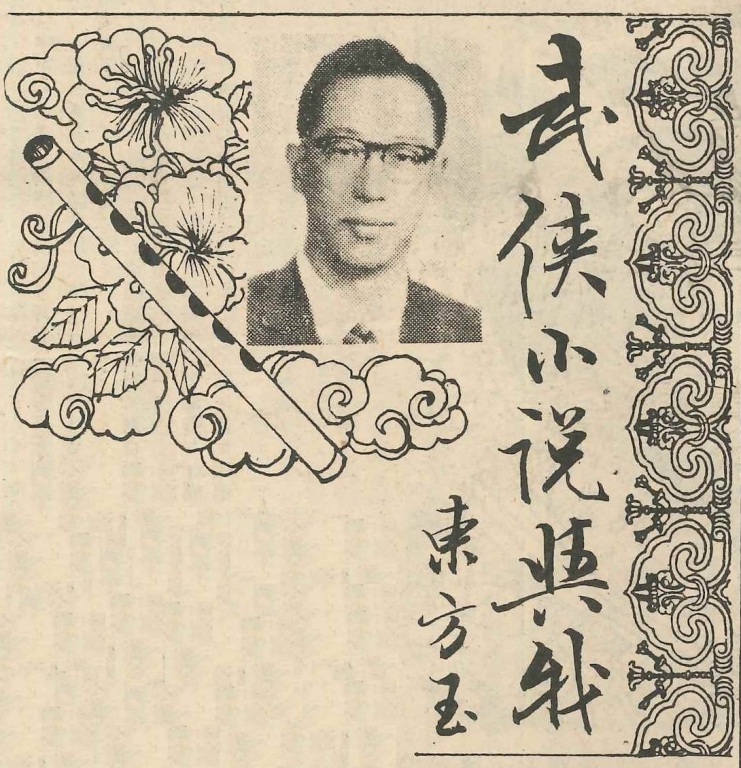 武俠小说與我
東方玉